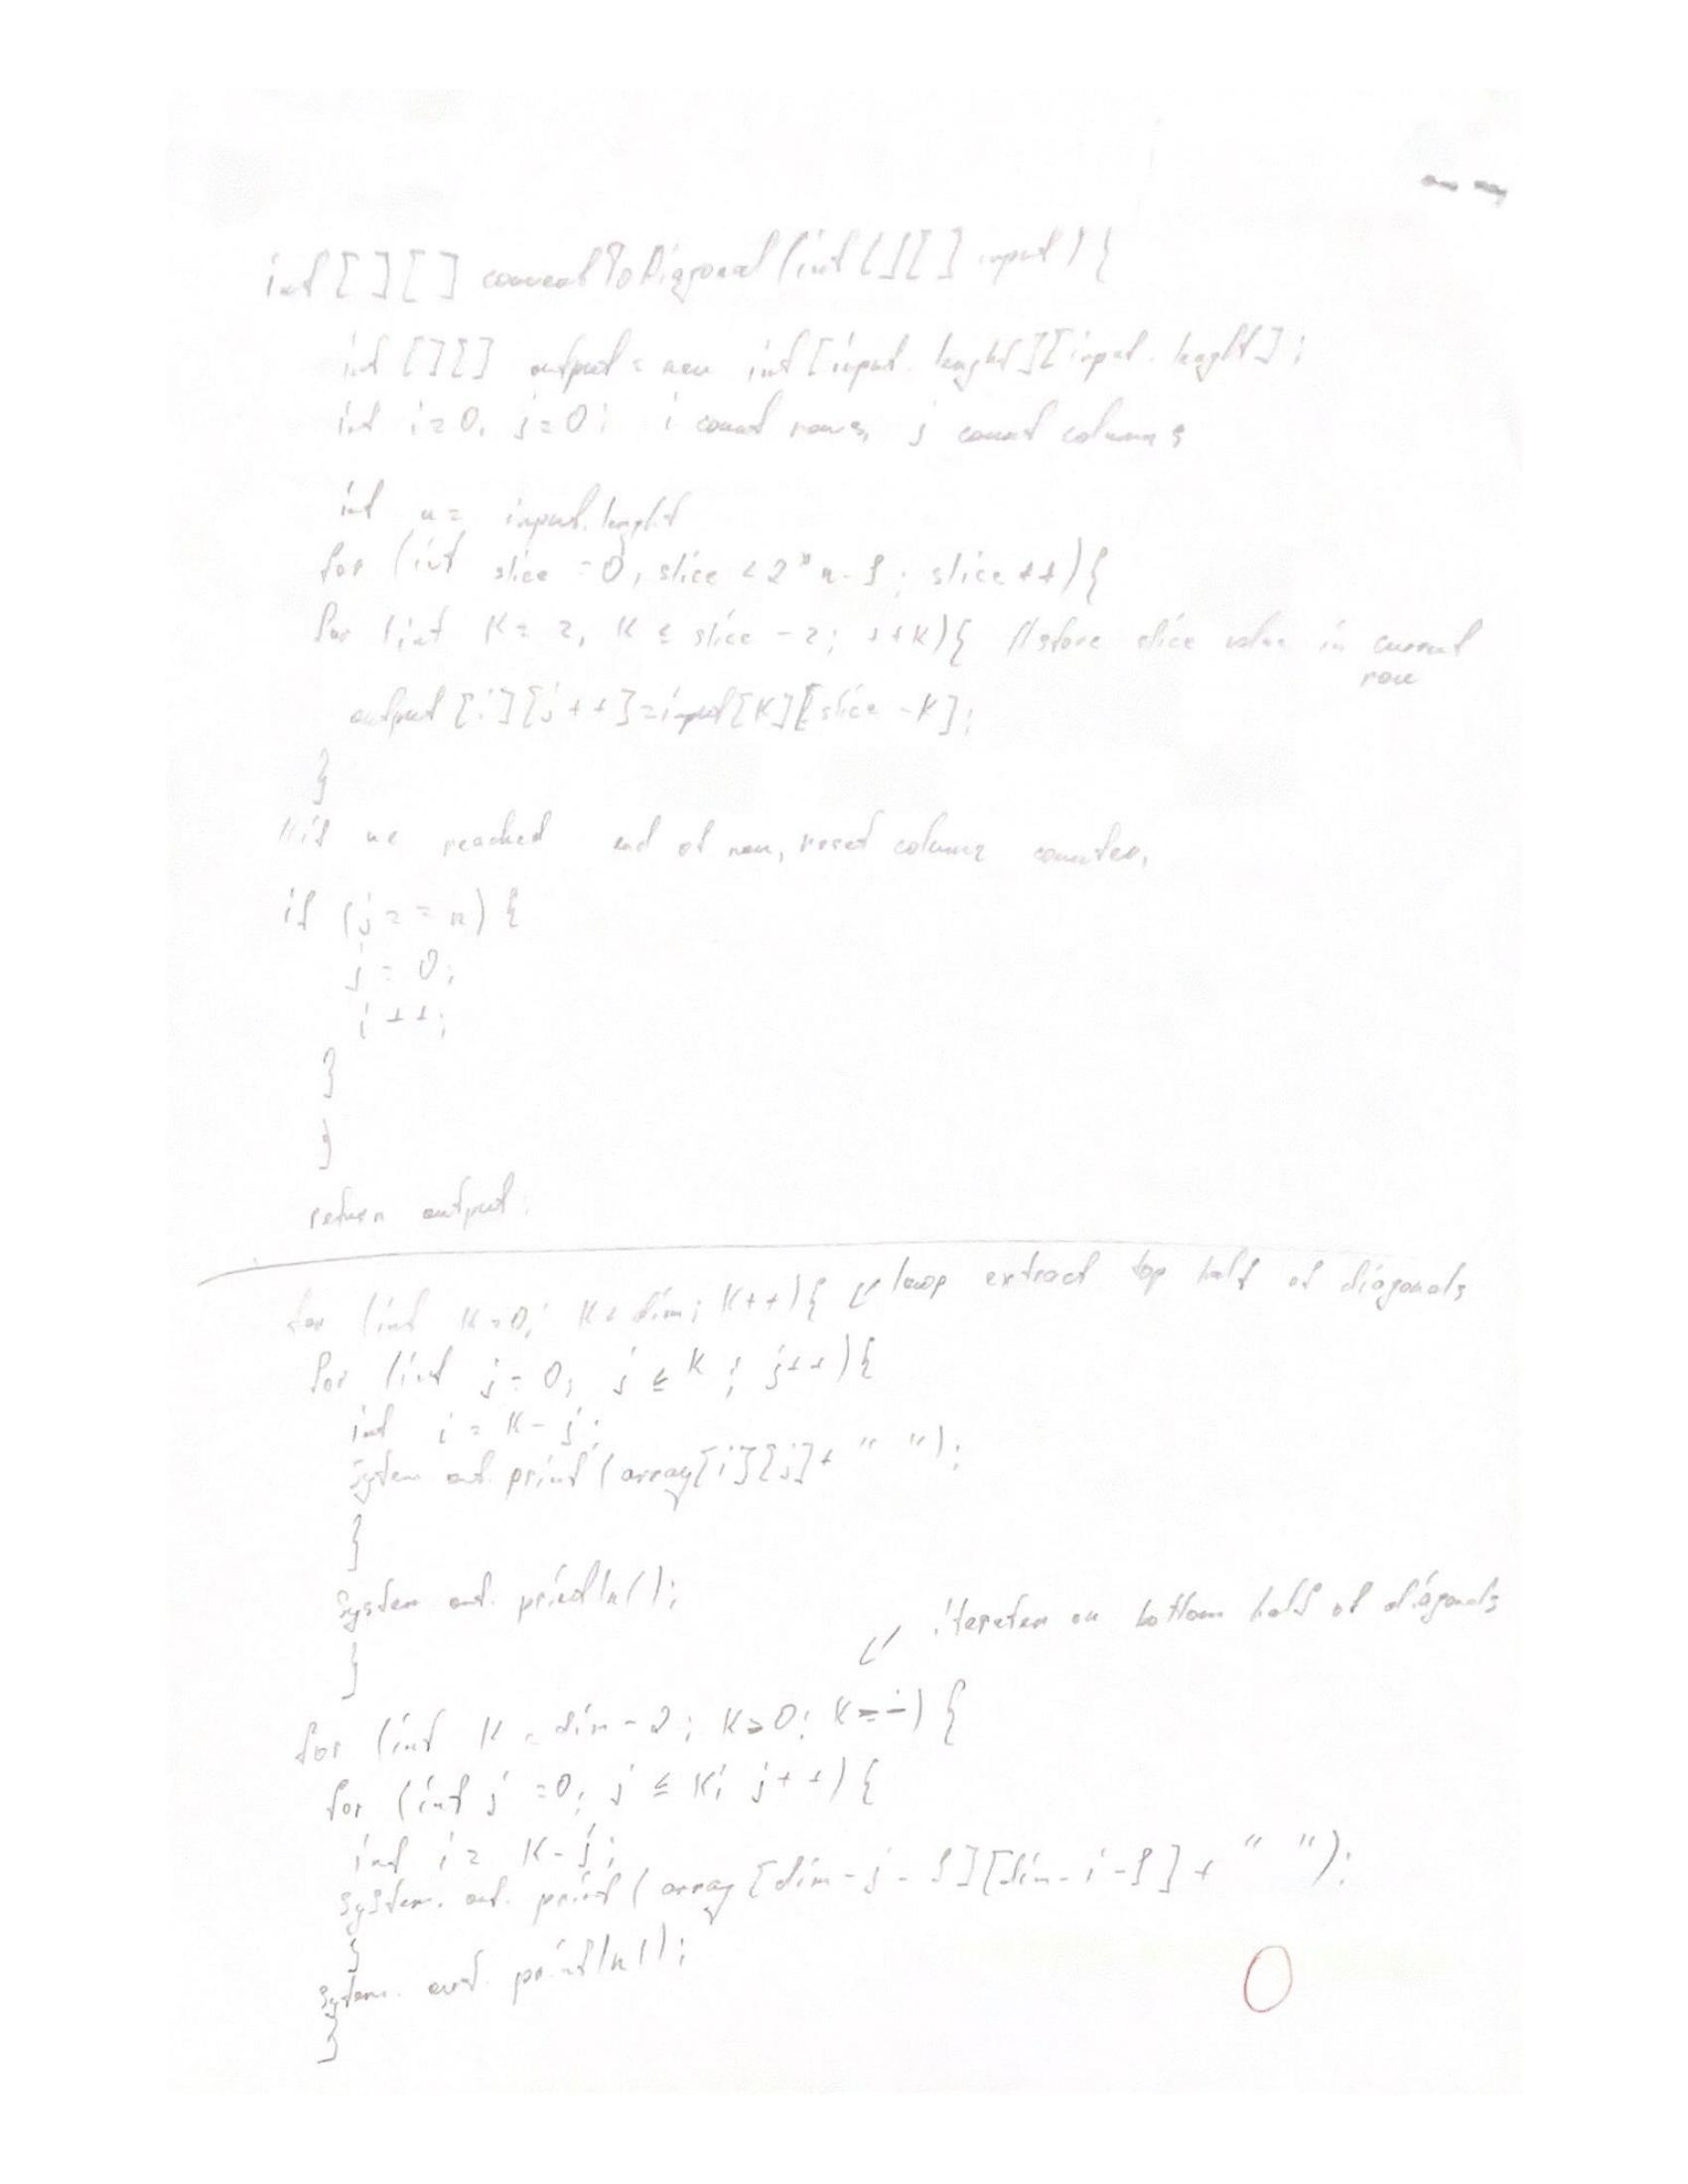 int [ ] [ ] convertToDiagonal (int [ ] [ ] input) {
int [ ] [ ] output = new int [input. lenght] [input. lenght] ;
int i=0, j=0; i count rows, j count columns
int n= input. lenght
for (int slice =0, slice < 2*n-1 ; slice ++) {
for (int K= z, K ≤ slice - z; ++K) { // store slice value in current
row
output [i] [j ++] = input [K] [slice -K];
}
// if we reached end of row, reset column counter,
if (j == n) {
j = 0;
i ++;
}
}
return output;
for (int K=0; K< dim; K++) { ↙ loop extract top half of diagonals
for (int j=0; j ≤ K ; j++) {
int i = K- j;
System out. print (array[i][j]+ " ");
}
System out. println();
}
↙ iteraten on bottom half of diagonals
for (int K = dim - 2; K≥0;
for (int j =0; j ≤ K; j++) {
int i = K-j;
System. out. print (array [dim-j-1][dim-i-1] + " ");
}
System. out. println();
}
0